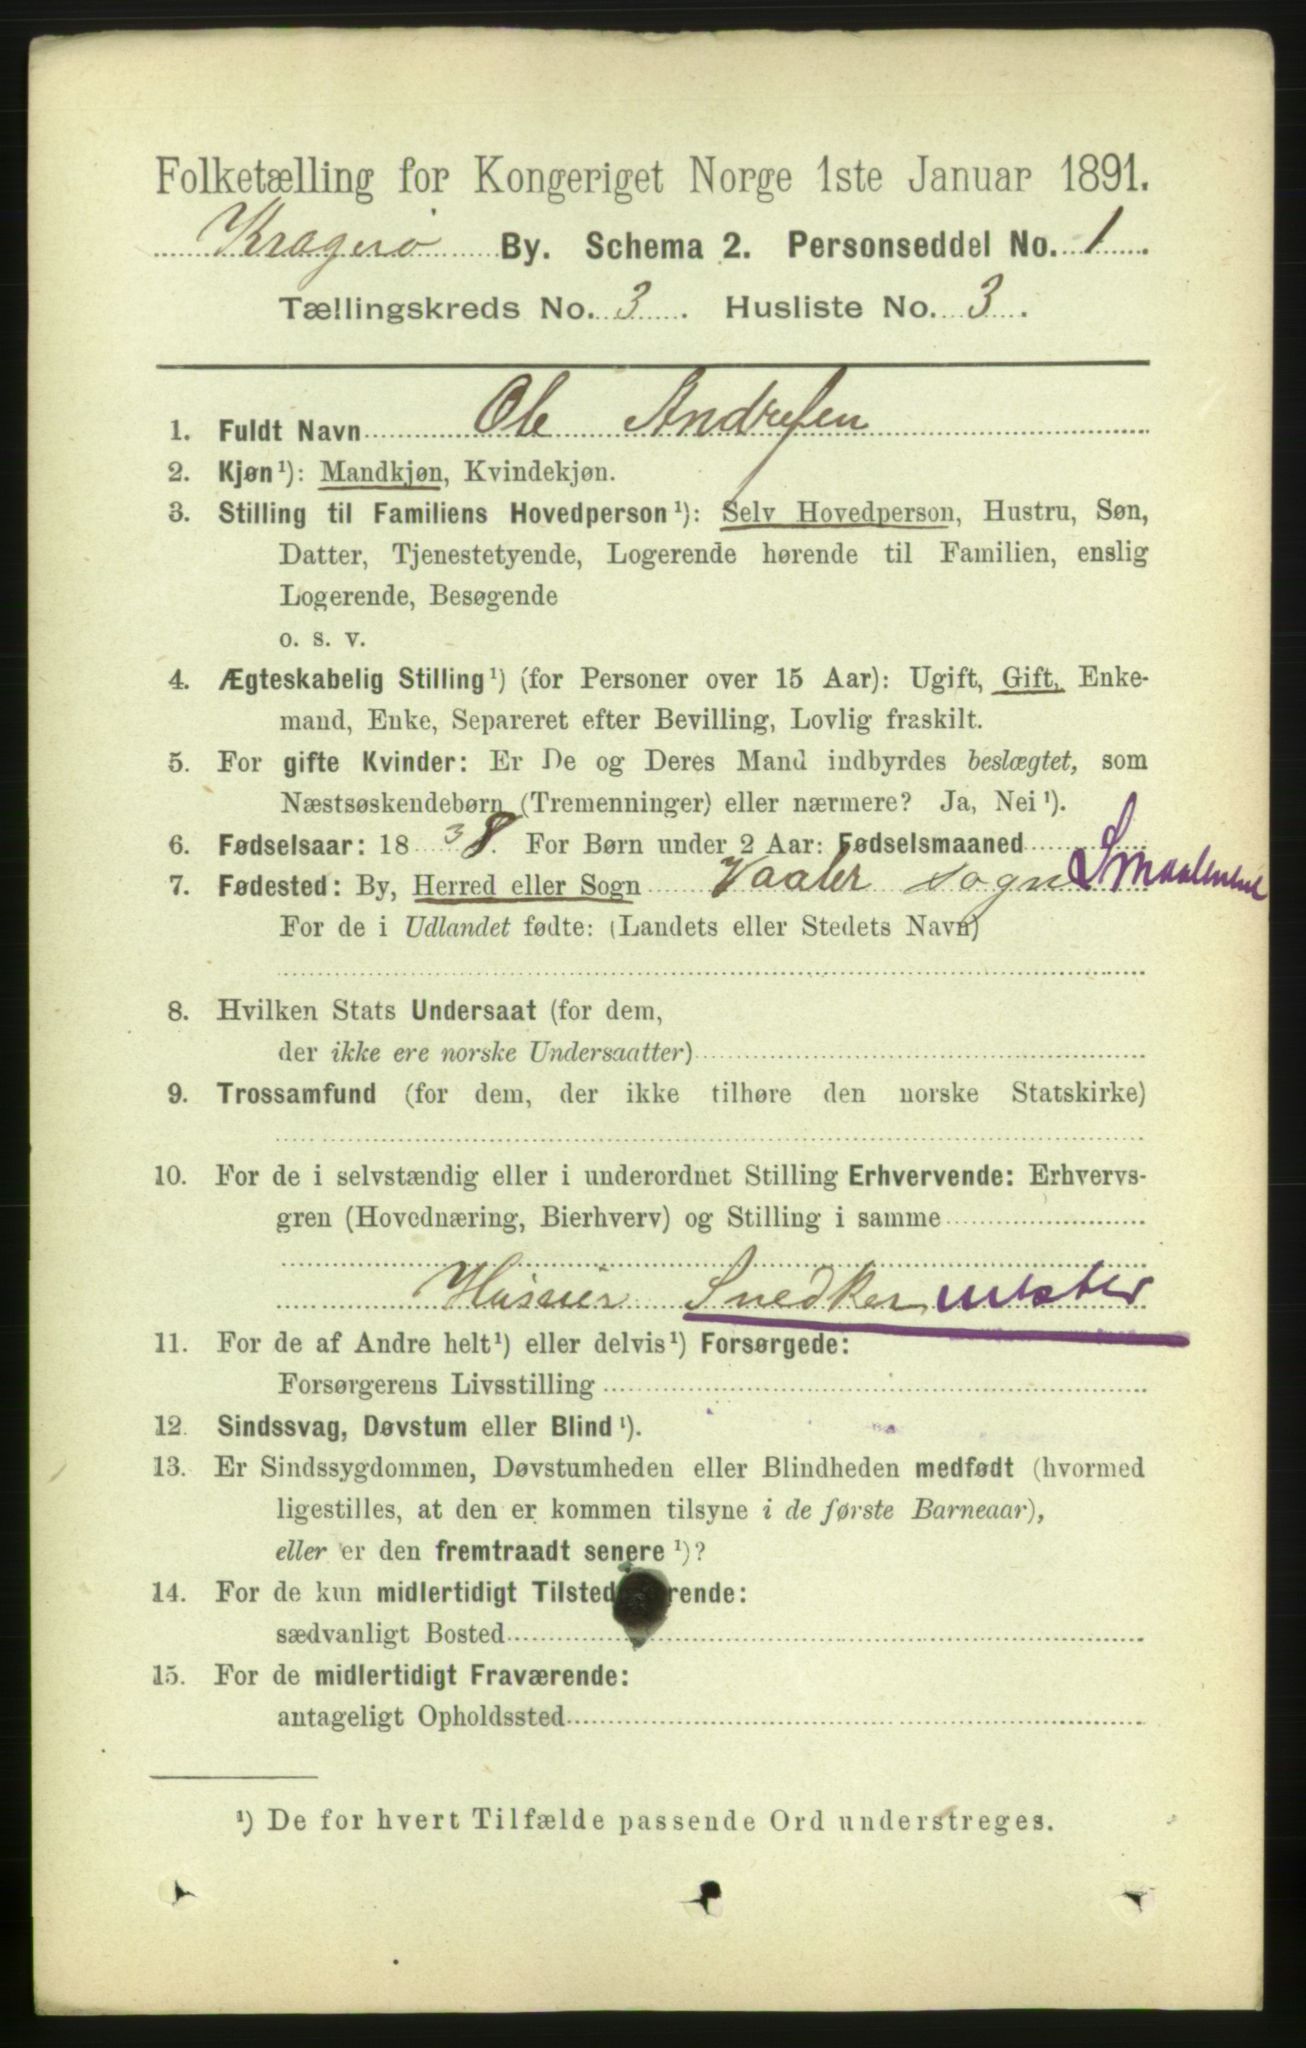 Folketælling for Kongeriget Norge 1ste Januar 1891.
Kragerø By. Schema 2. Personseddel No. 1.
Tællingskreds No. 3. Husliste No. 3.
1. Fuldt Navn Ole Andresen
2. Kjøn¹): Mandkjøn, Kvindekjøn.
3. Stilling til Familiens Hovedperson¹): Selv Hovedperson, Hustru, Søn,
Datter, Tjenestetyende, Logerende hørende til Familien, enslig
Logerende, Besøgende
o. s. v.
4. Ægteskabelig Stilling¹) (for Personer over 15 Aar): Ugift, Gift, Enke-
mand, Enke, Separeret efter Bevilling, Lovlig fraskilt.
5. For gifte Kvinder: Er De og Deres Mand indbyrdes beslægtet, som
Næstsøskendebørn (Tremenninger) eller nærmere? Ja, Nei¹).
6. Fødselsaar: 1838. For Børn under 2 Aar: Fødselsmaaned
7. Fødested: By, Herred eller Sogn Vaaler Sogn Smaalenene
For de i Udlandet fødte: (Landets eller Stedets Navn)
8. Hvilken Stats Undersaat (for dem,
der ikke ere norske Undersaatter)
9. Trossamfund (for dem, der ikke tilhøre den norske Statskirke)
10. For de i selvstændig eller i underordnet Stilling Erhvervende: Erhvervs-
gren (Hovednæring, Bierhverv) og Stilling i samme
Huseier Snedkermester
11. For de af Andre helt¹) eller delvis¹) Forsørgede:
Forsørgerens Livsstilling
12. Sindssvag, Døvstum eller Blind¹).
13. Er Sindssygdommen, Døvstumheden eller Blindheden medfødt (hvormed
ligestilles, at den er kommen tilsyne i de første Barneaar),
eller er den fremtraadt senere¹)?
14. For de kun midlertidigt Tilstedeværende:
sædvanligt Bosted
15. For de midlertidigt Fraværende:
antageligt Opholdssted
¹) De for hvert Tilfælde passende Ord understreges.